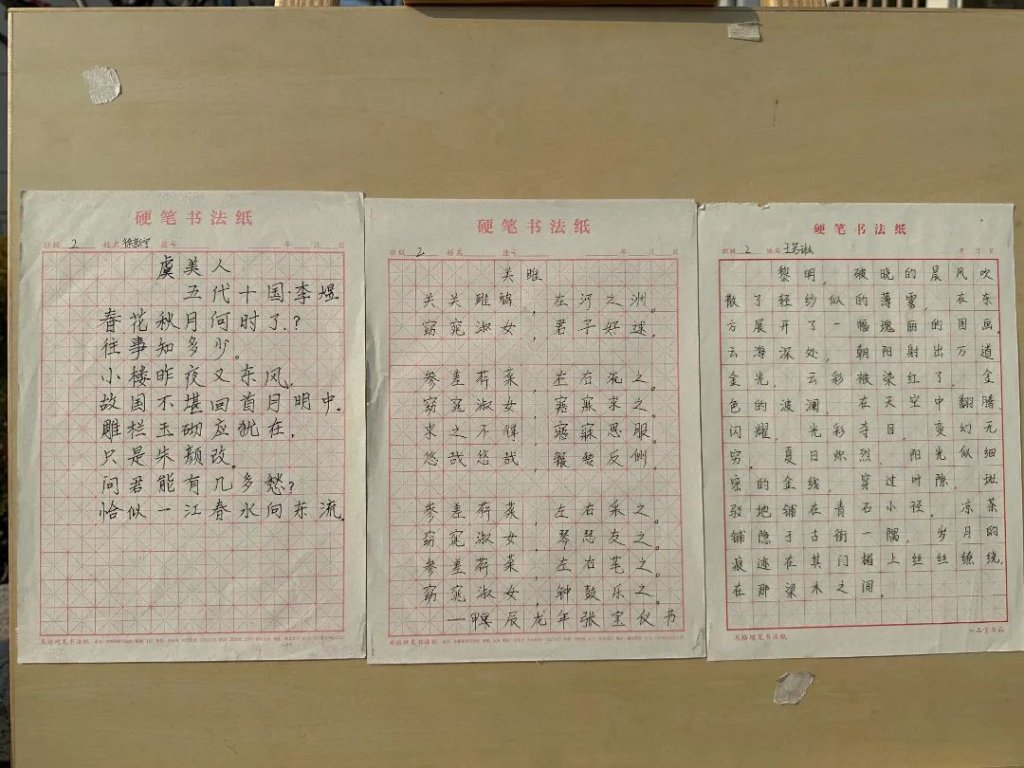 硬笔书法纸
班级 2 姓名 座号 年 月 日
虞美人
五代十国·李煜
春花秋月何时了?
往事知多少。
小楼昨夜又东风,
故国不堪回首月明中。
雕栏玉砌应犹在,
只是朱颜改。
问君能有几多愁?
恰似一江春水向东流。
米格硬笔书法纸
硬笔书法纸
班级 2 姓名 座号 年 月 日
关雎
关关雎鸠,在河之洲。
窈窕淑女,君子好逑。
参差荇菜,左右流之。
窈窕淑女,寤寐求之。
求之不得,寤寐思服。
悠哉悠哉,辗转反侧。
参差荇菜,左右采之。
窈窕淑女,琴瑟友之。
参差荇菜,左右芼之。
窈窕淑女,钟鼓乐之。
—甲辰龙年张宝仪书
米格硬笔书法纸
硬笔书法纸
班级 2 姓名 年 月 日
黎明,破晓的晨风吹
散了轻纱似的薄雾,在东
方展开了一幅瑰丽的图画。
云海深处,朝阳射出万道
金光,云彩被染红了,金
色的波澜,在天空中翻腾
闪耀,光彩夺目,变幻无
穷。夏日炽烈,阳光似细
密的金线,穿过叶隙,斑
驳地铺在青石小径,凉茶
铺隐于古街一隅,岁月的
痕迹在其门楣上丝丝缠绕,
在那梁木之间。
米格硬笔书法纸
作品堂出品